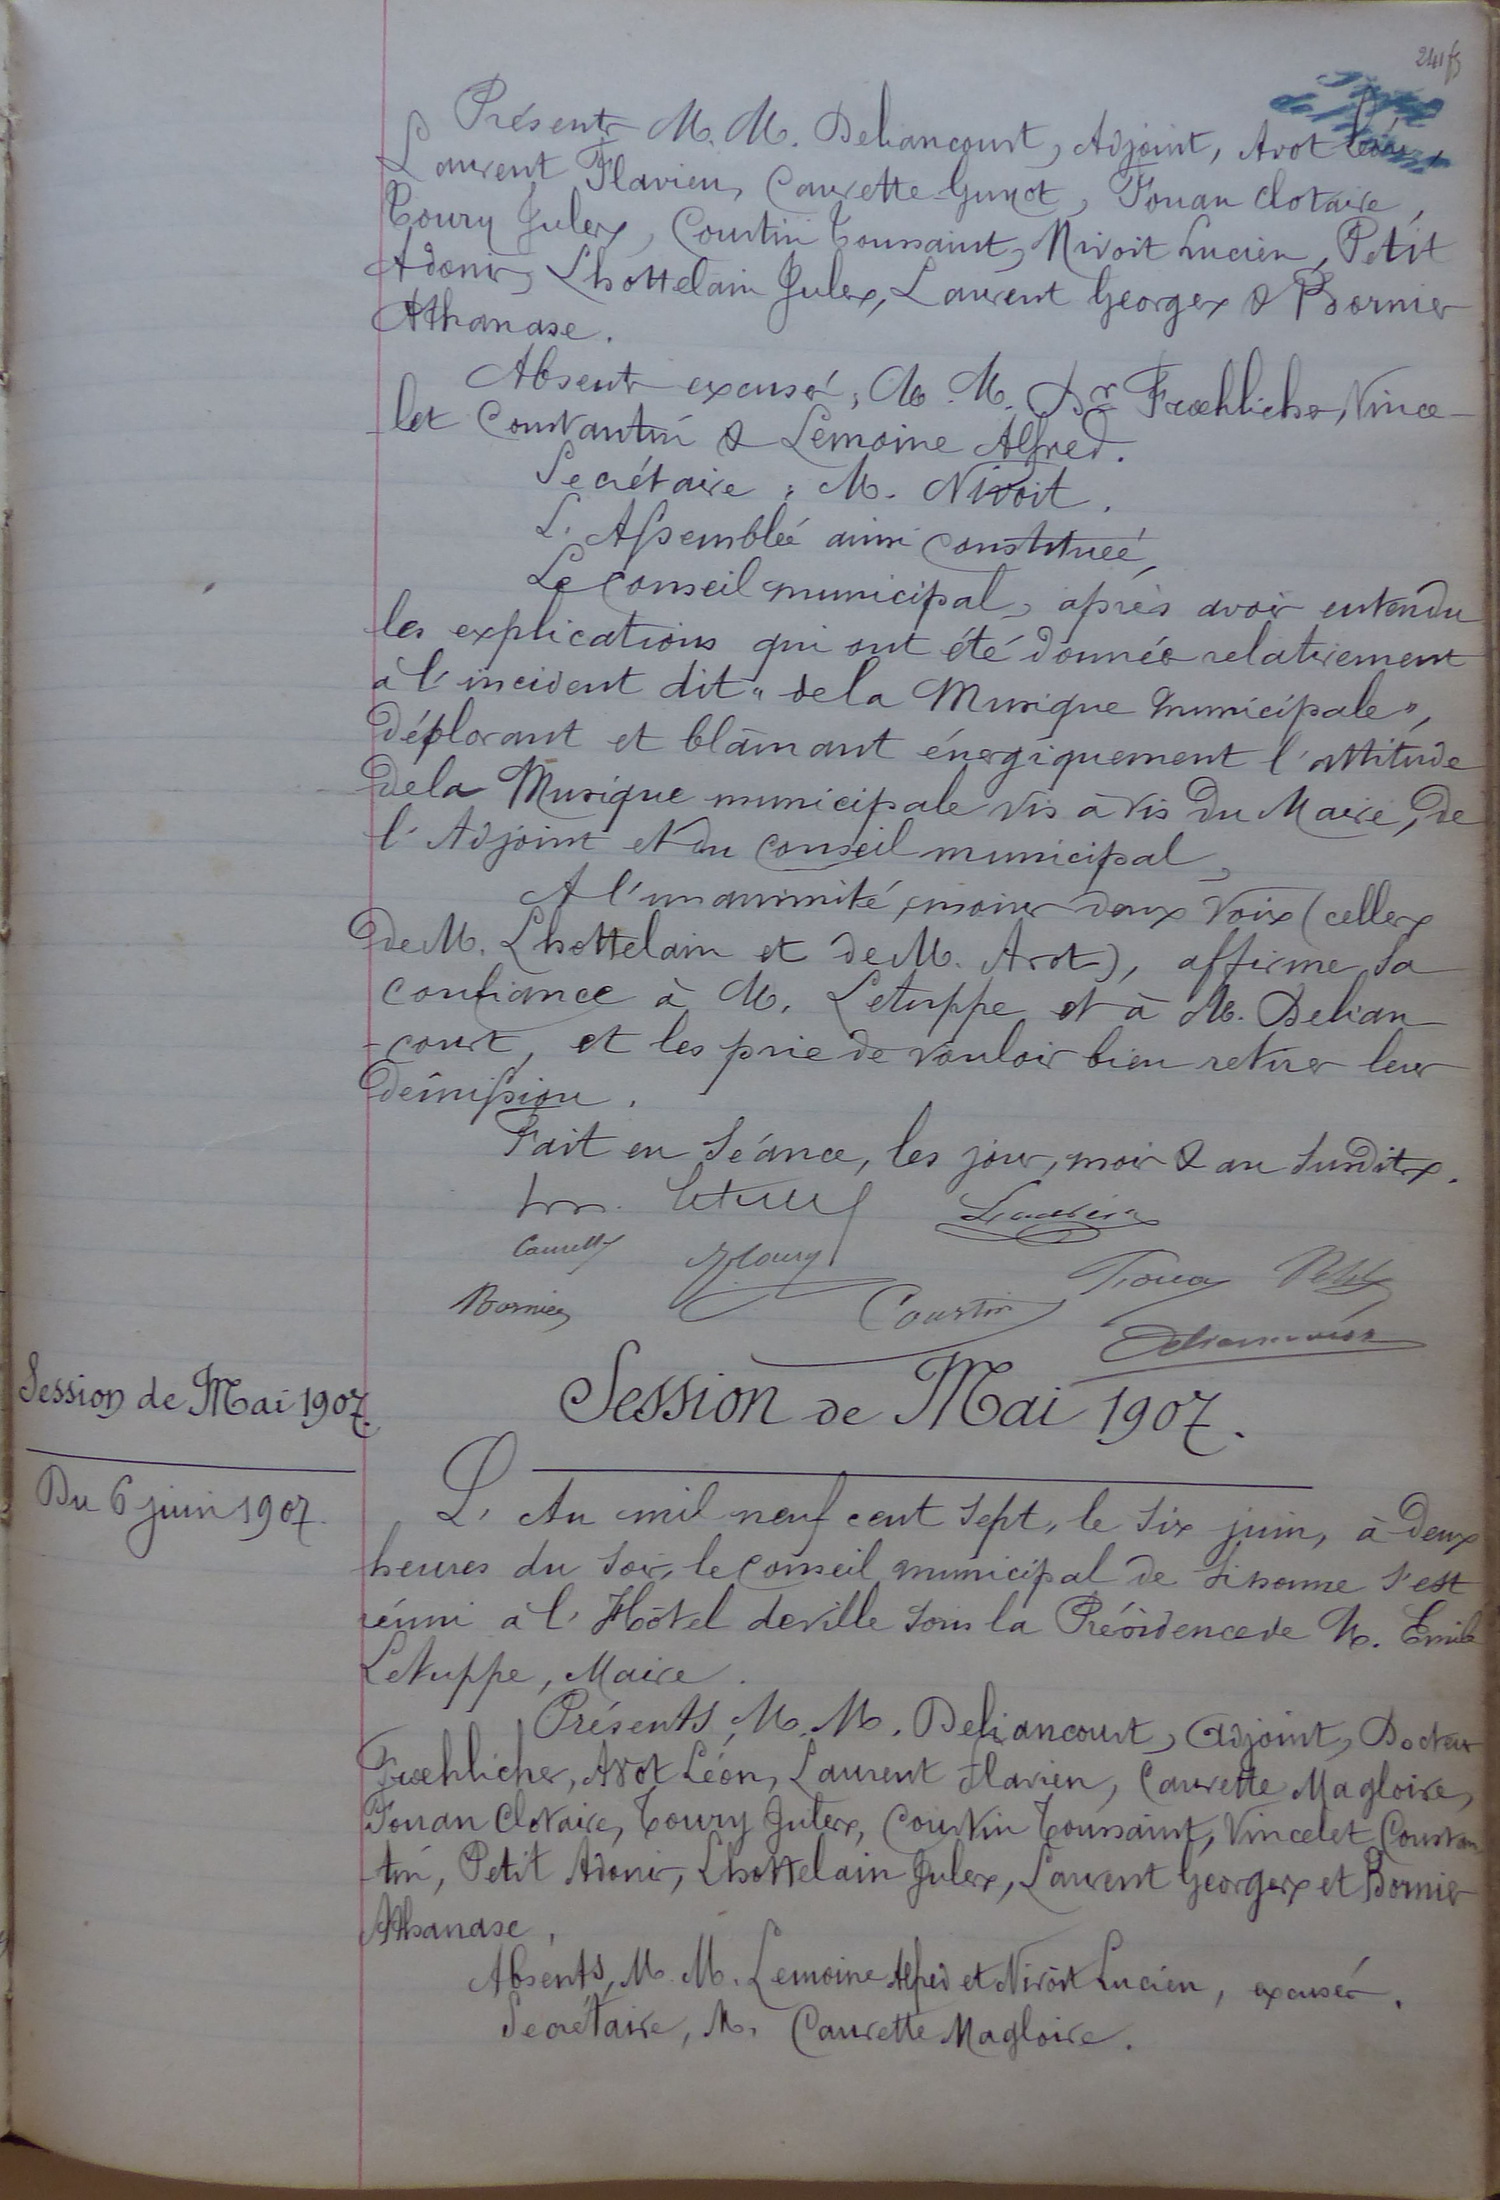 241
Présents M. M. Deliancourt, Adjoint, Arot Léon,
Laurent Flavien, Caurette Gunot, Fouan Clotaire,
Toury Jules, Courtin Toussaint, Nivoit Lucien, Petit
Adonis, Lhottelain Jules, Laurent Georges & Bornier
Athanase.
Absents excusés, M. M. Dr Frœhlicher, Vince-
let Constantin & Lemoine Alfred.
Secrétaire : M. Nivoit.
L'Assemblée ainsi constituée,
Le Conseil municipal, après avoir entendu
les explications qui ont été données relativement
à l'incident dit "de la Musique municipale",
déplorant et blâmant énergiquement l'attitude
de la Musique municipale vis à vis du Maire, de
l'Adjoint et du Conseil municipal,
A l'unanimité, moins deux voix (celles
de M. Lhottelain et de M. Arot), affirme sa
confiance à M. Letuppe et à M. Delian-
-court, et les prie de vouloir bien retirer leur
démission.
Fait en séance, les jour, mois & an susdits.
Caurette Toury
Fouan Petit
Bornier Courtin
Deliancourt
Session de Mai 1907.
Session de Mai 1907.
Du 6 juin 1907.
L'An mil neuf cent sept, le six juin, à deux
heures du soir, le Conseil municipal de Sissonne s'est
réuni à l'Hôtel de ville sous la Présidence de M. Emile
Letuppe, Maire.
Présents, M. M. Deliancourt, Adjoint, Docteur
Frœhlicher, Arot Léon, Laurent Flavien, Caurette Magloire,
Fouan Clotaire, Toury Jules, Courtin Toussaint, Vincelet Constan
tin, Petit Adonis, Lhottelain Jules, Laurent Georges et Bornier
Athanase,
Absents, M. M. Lemoine Alfred et Nivoit Lucien, excusés.
Secrétaire, M. Caurette Magloire.